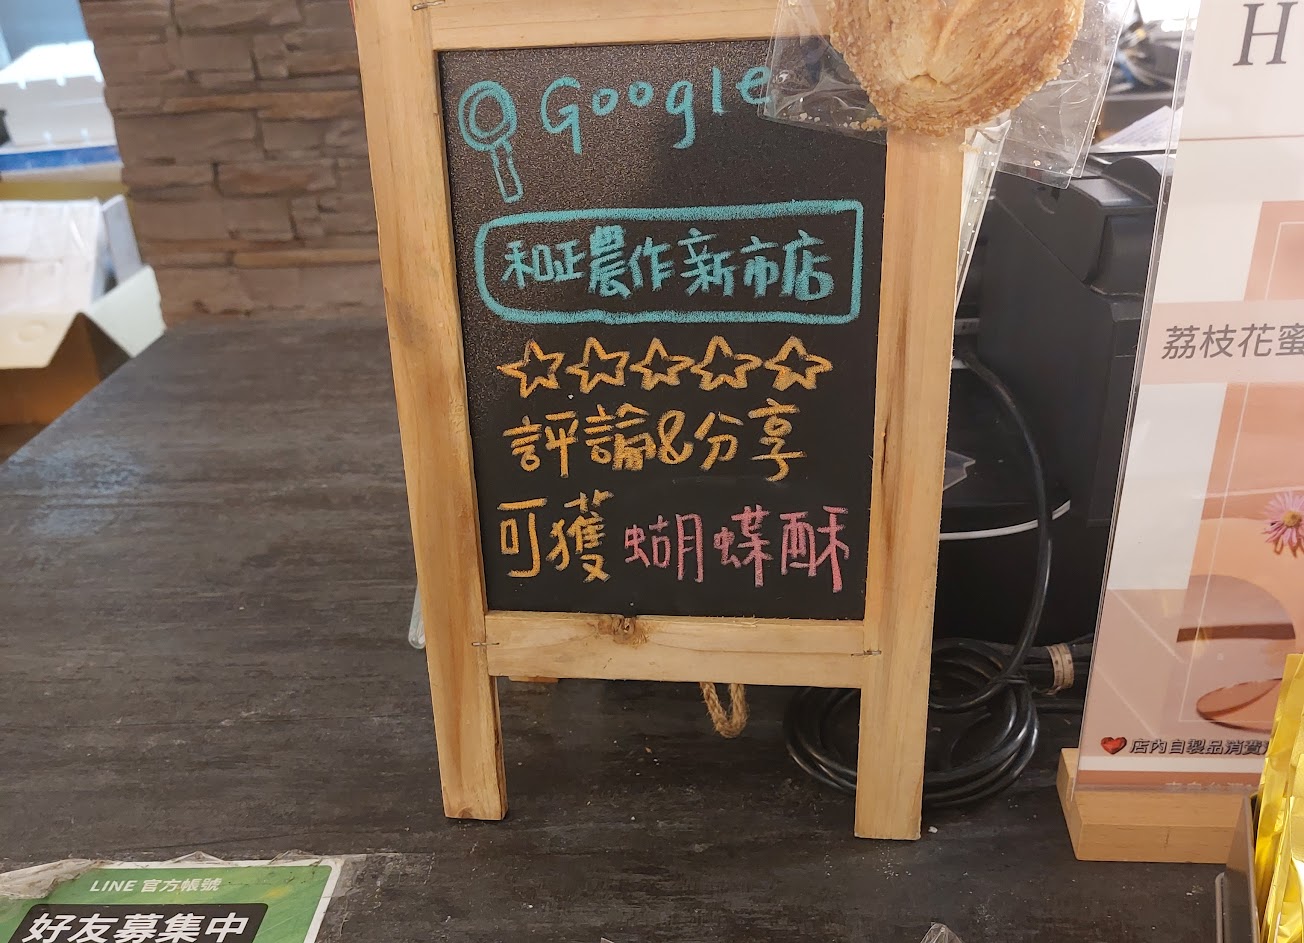 Google
和正農作新市店
評論&分享
可獲蝴蝶酥
H
荔枝花蜜
店內自製品消費
LINE 官方帳號
好友募集中